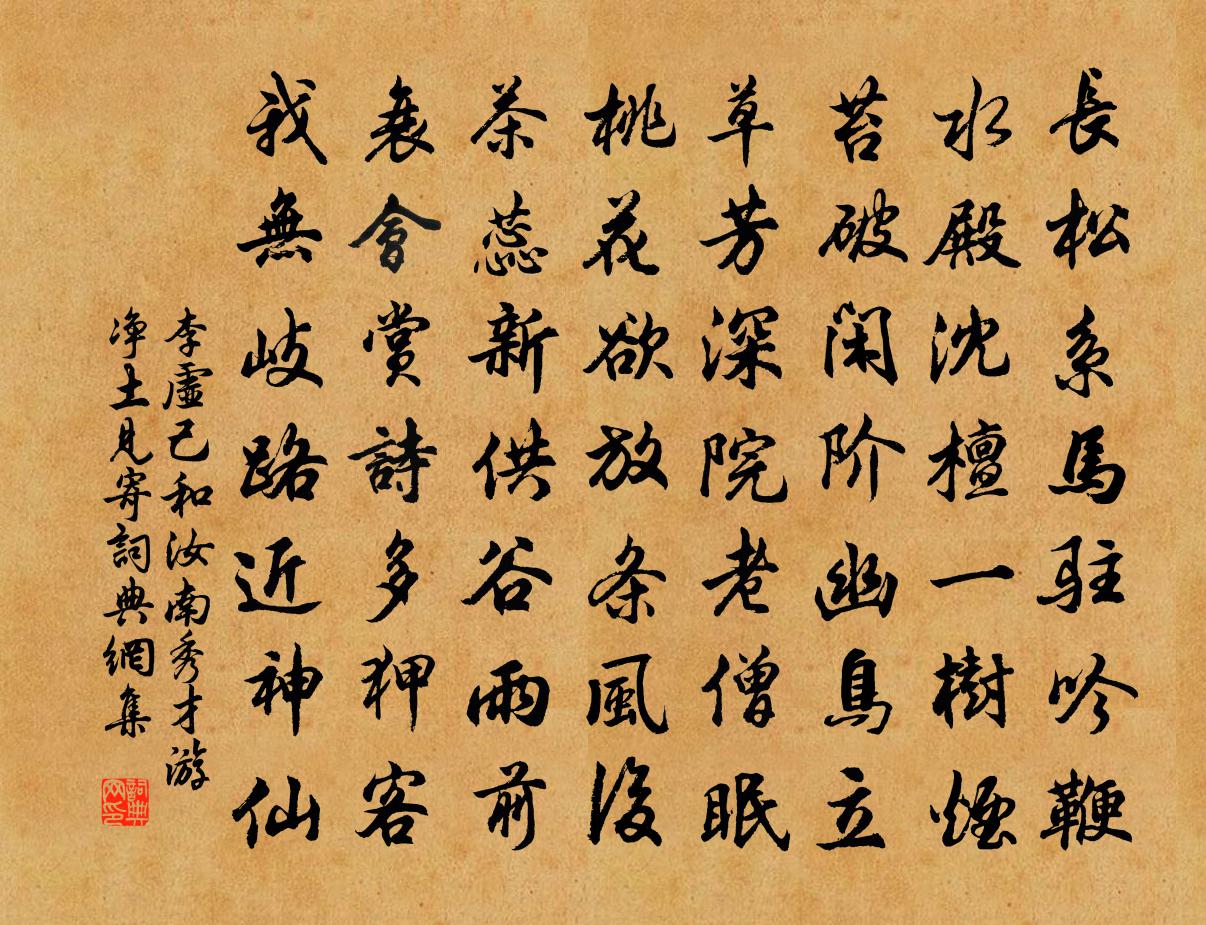 長松系馬駐吟鞭
水殿沈檀一樹煙
苔破閑阶幽鳥立
草芳深院老僧眠
桃花欲放条風後
茶蕊新供谷雨前
衰會賞詩多狎客
我無岐路近神仙
李虛己和汝南秀才游
净土見寄詞典網集
詞典
网印